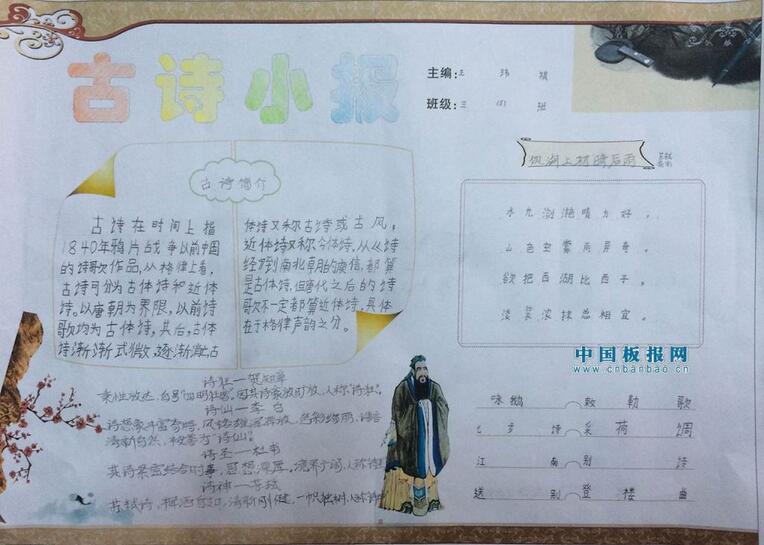 古诗小报
主编:王玮祺
班级:三(四)班
古诗简介
古诗在时间上指
1840年鸦片战争以前中国
的诗歌作品,从格律上看,
古诗可分为古体诗和近体
诗。以唐朝为界限,以前诗
歌均为古体诗,其后,古体
诗渐渐式微,逐渐
体诗又称古诗或古风,
近体诗又称今体诗。从《诗
经》到南北朝的庾信,都算
是古体诗,但唐代之后的诗
歌不一定都算近体诗,具体
在于格律声韵之分。
湖上初晴后雨
水光潋滟晴方好,
山色空蒙雨亦奇。
欲把西湖比西子,
淡装浓抹总相宜。
中国板报网
www.cnbanbao.cn
诗狂—贺知章
秉性放达,自号"四明狂客"。因其诗豪放旷放,人称"诗狂"。
诗仙—李白
诗想象丰富奇特,风格雄浑奔放,色彩绚丽,语言
清新自然,被誉为"诗仙"。
诗圣—杜甫
其诗紧密结合时事,思想深厚,境界广阔,人称
诗神—苏轼
苏轼诗,挥洒自如,清新刚健,一帜独树,人称诗神
咏鹅 敕勒歌
七步诗 采荷调
江南 别诗
送别 登楼曲